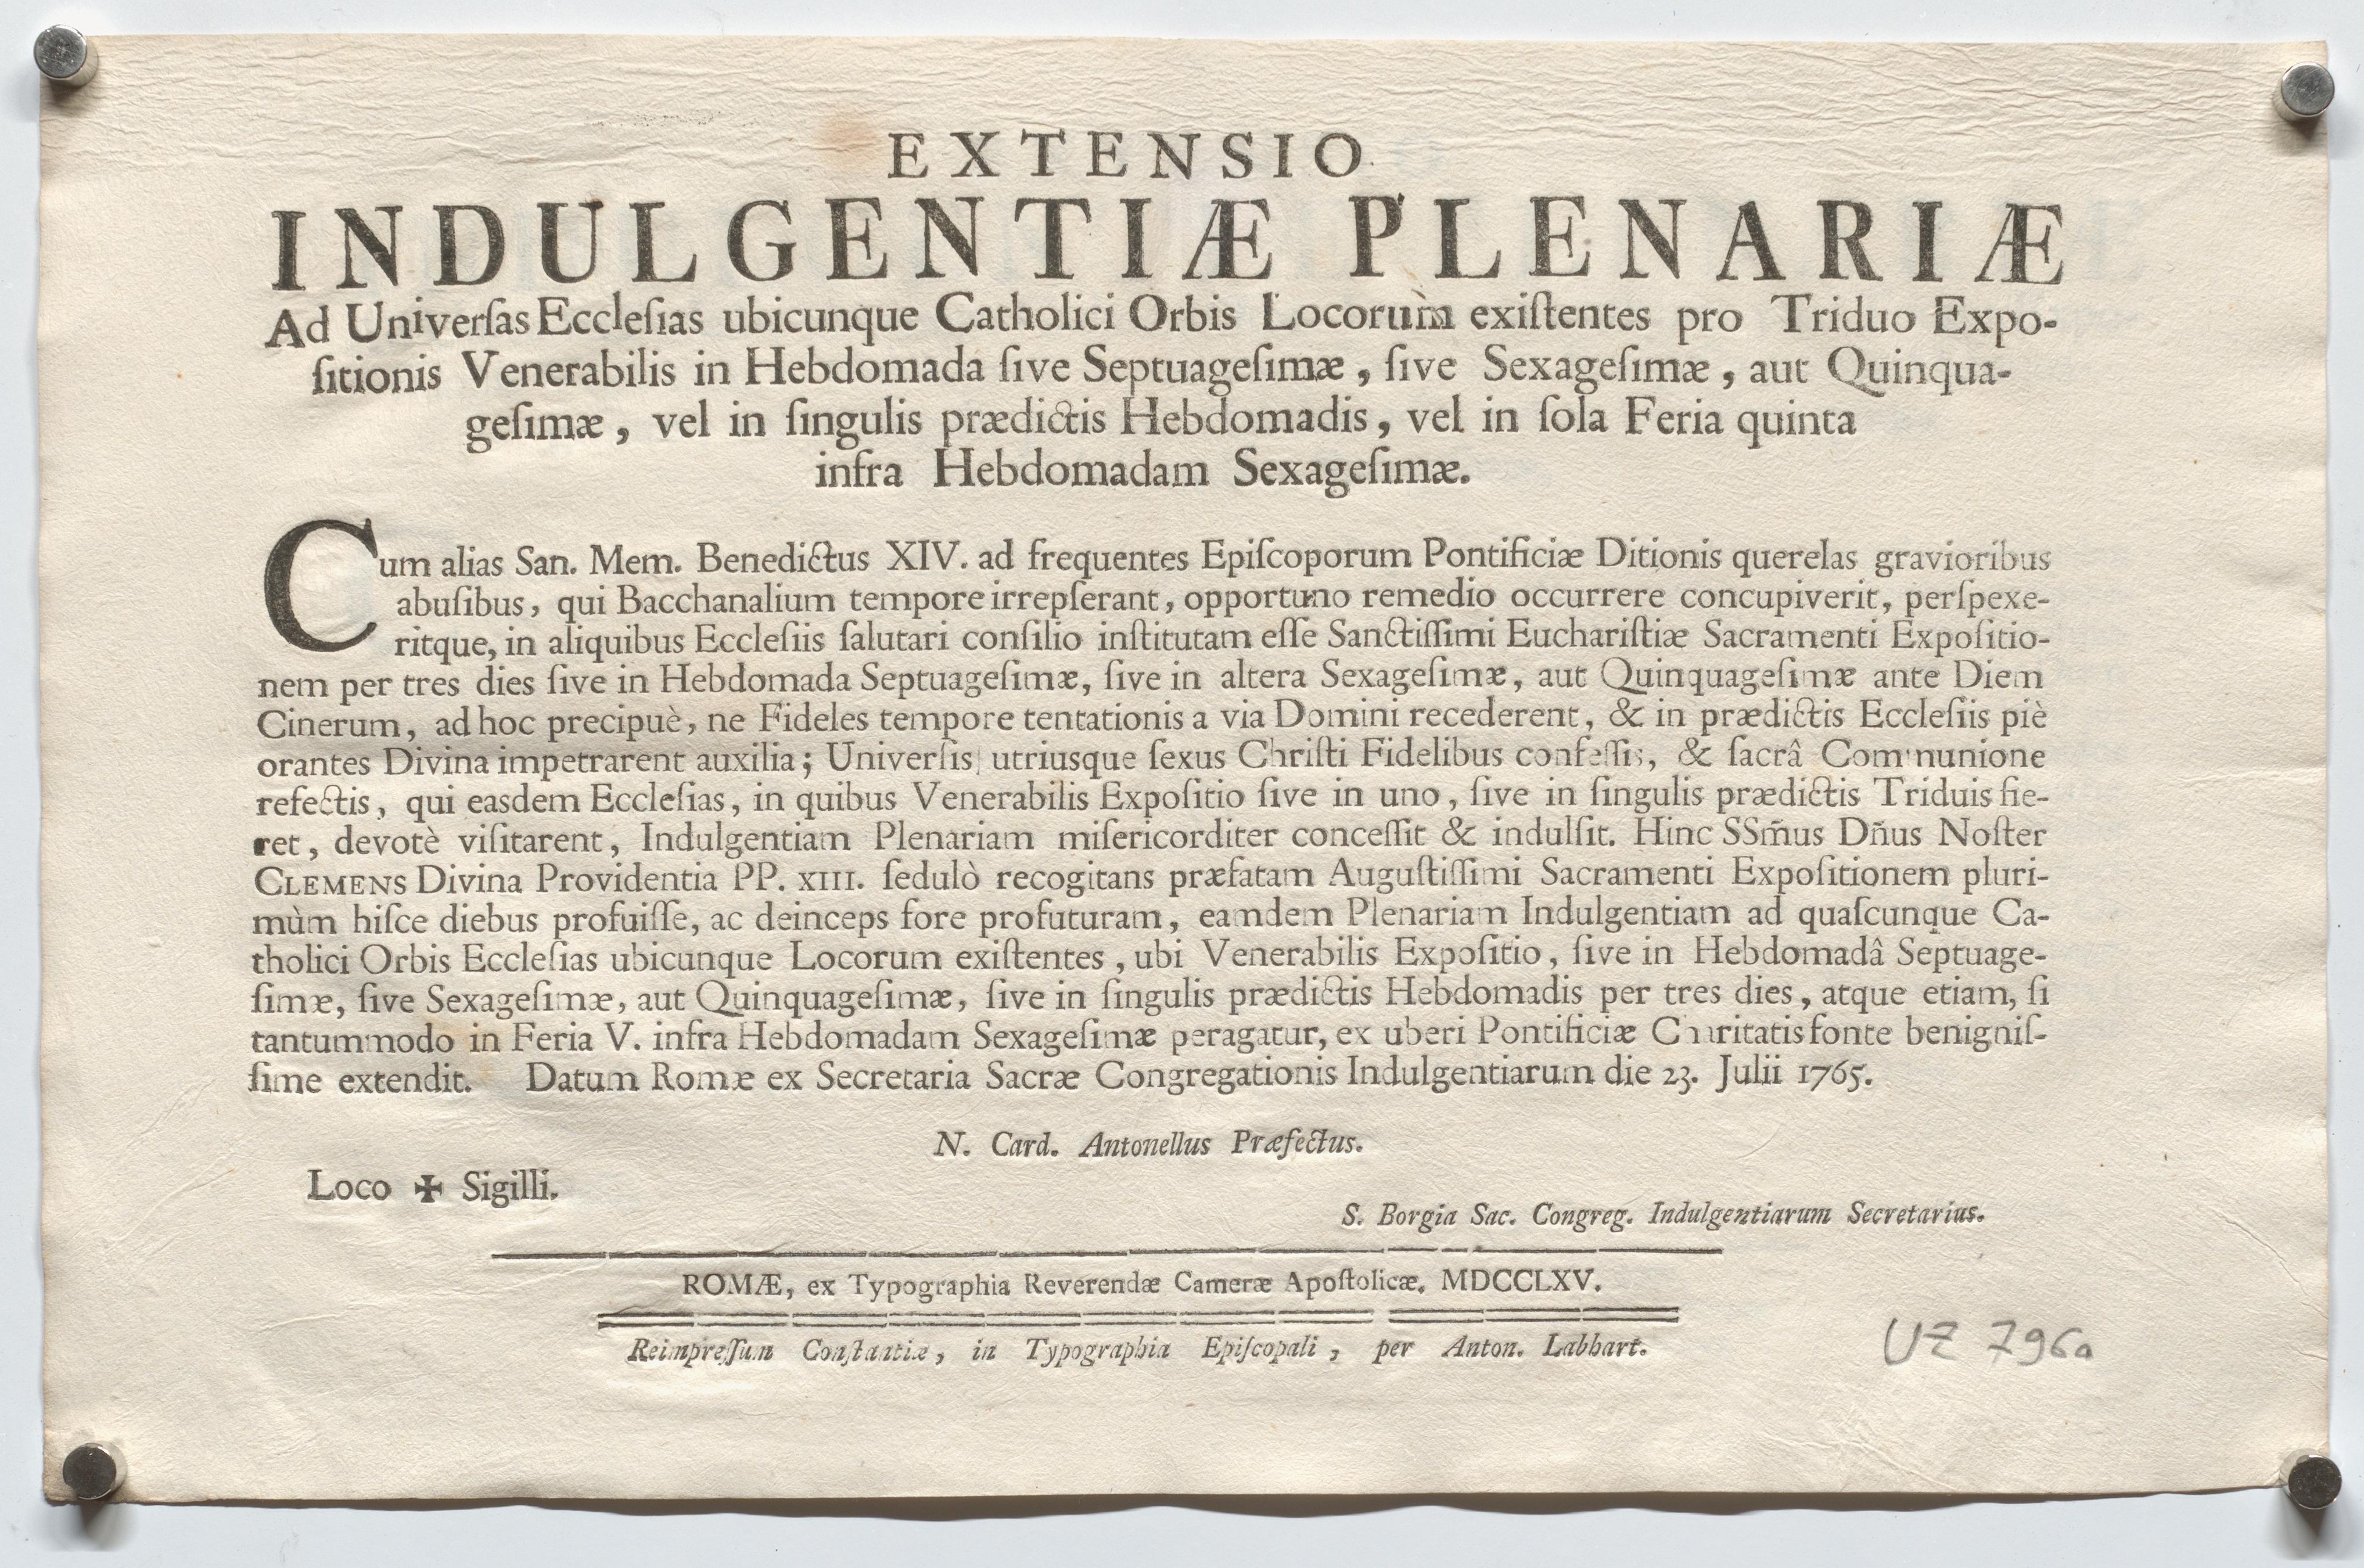 EXTENSIO
INDULGENTIÆ PLENARIÆ
Ad Univerſas Eccleſias ubicunque Catholici Orbis Locorum̀ exiſtentes pro Triduo Expo-
ſitionis Venerabilis in Hebdomada ſive Septuageſimæ, ſive Sexageſimæ, aut Quinqua-
geſimæ, vel in ſingulis prædictis Hebdomadis, vel in ſola Feria quinta
infra Hebdomadam Sexageſimæ.
Cum alias San. Mem. Benedictus XIV. ad frequentes Epiſcoporum Pontificiæ Ditionis querelas gravioribus
abuſibus, qui Bacchanalium tempore irrepſerant, opportuno remedio occurrere concupiverit, perſpexe-
ritque, in aliquibus Eccleſiis ſalutari conſilio inſtitutam eſſe Sanctiſſimi Euchariſtiæ Sacramenti Expoſitio-
nem per tres dies ſive in Hebdomada Septuageſimæ, ſive in altera Sexageſimæ, aut Quinquageſimæ ante Diem
Cinerum, ad hoc precipuè, ne Fideles tempore tentationis a via Domini recederent, & in prædictis Eccleſiis piè
orantes Divina impetrarent auxilia; Univerſis utriusque ſexus Chriſti Fidelibus confeſſis, & ſacrâ Communione
refectis, qui easdem Eccleſias, in quibus Venerabilis Expoſitio ſive in uno, ſive in ſingulis prædictis Triduis fie-
ret, devotè viſitarent, Indulgentiam Plenariam miſericorditer conceſſit & indulſit. Hinc SSm̃us Dñus Noſter
CLEMENS Divina Providentia PP. XIII. ſedulò recogitans præfatam Auguſtiſſimi Sacramenti Expoſitionem pluri-
mùm hiſce diebus profuiſſe, ac deinceps fore profuturam, eamdem Plenariam Indulgentiam ad quaſcunque Ca-
tholici Orbis Eccleſias ubicunque Locorum exiſtentes, ubi Venerabilis Expoſitio, ſive in Hebdomadâ Septuage-
ſimæ, ſive Sexageſimæ, aut Quinquageſimæ, ſive in ſingulis prædictis Hebdomadis per tres dies, atque etiam, ſi
tantummodo in Feria V. infra Hebdomadam Sexageſimæ peragatur, ex uberi Pontificiæ Charitatis fonte benigniſ-
ſime extendit. Datum Romæ ex Secretaria Sacræ Congregationis Indulgentiarum die 23. Julii 1765.
N. Card. Antonellus Præfectus.
Loco ✠ Sigilli.
S. Borgia Sac. Congreg. Indulgentiarum Secretarius.
ROMÆ, ex Typographia Reverendæ Cameræ Apoſtolicæ. MDCCLXV.
Reimpreſſum Conſtantiæ, in Typographia Epiſcopali, per Anton. Labhart.
UZ 796a